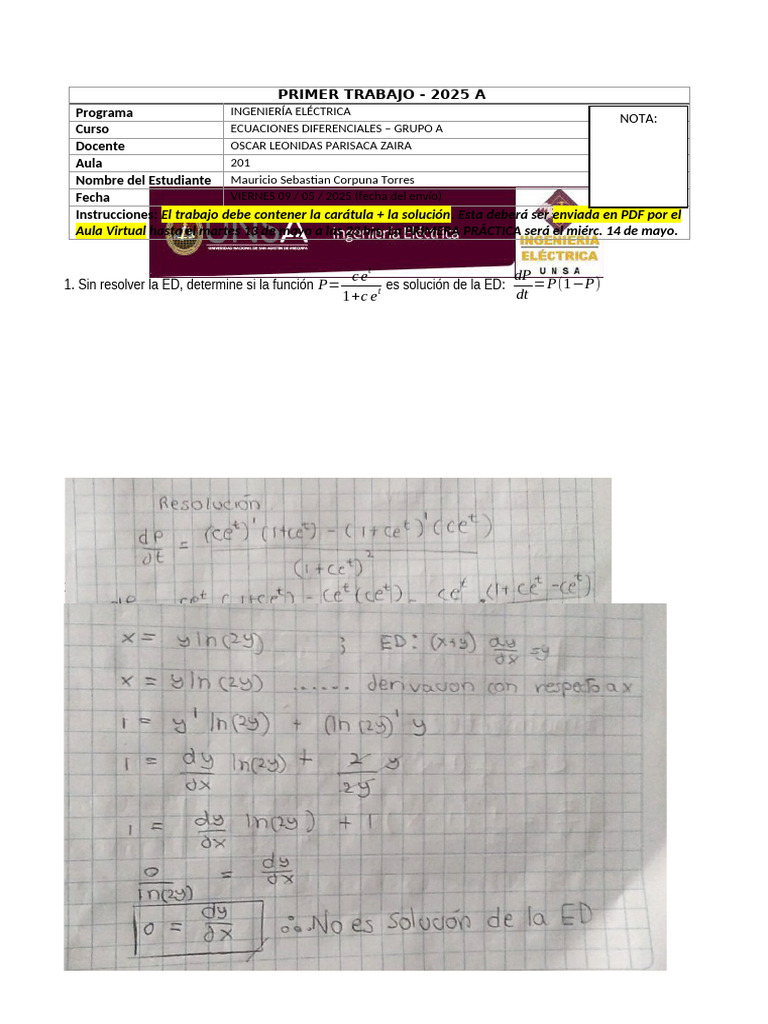 PRIMER TRABAJO - 2025 A
Programa INGENIERÍA ELÉCTRICA
NOTA:
Curso ECUACIONES DIFERENCIALES – GRUPO A
Docente OSCAR LEONIDAS PARISACA ZAIRA
Aula 201
Nombre del Estudiante Mauricio Sebastian Corpuna Torres
Fecha VIERNES 09 / 05 / 2025 (fecha del envío)
Instrucciones: El trabajo debe contener la carátula + la solución. Esta deberá ser enviada en PDF por el
Aula Virtual hasta el martes 13 de mayo a las PRIMERA PRÁCTICA será el miérc. 14 de mayo.
UNSA
Ingeniería Eléctrica
INGENIERÍA
ELÉCTRICA
UNSA
1. Sin resolver la ED, determine si la función P = ce^t / (1+ce^t) es solución de la ED: dP/dt = P(1−P)
Resolución
dP/dt = ((ce^t)'(1+ce^t) - (1+ce^t)'(ce^t)) / (1+ce^t)^2
ce^t (1+ce^t) - ce^t (ce^t) = ce^t . (1+ce^t -ce^t)
x = y ln(2y) ; ED: (x+y) dy/dx = y
x = y ln(2y) ...... derivacion con respecto a x
1 = y' ln(2y) + (ln(2y))' y
1 = dy/dx ln(2y) + 2/2y y
1 = dy/dx ln(2y) + 1
0/ln(2y) = dy/dx
0 = dy/dx ∴ No es solución de la ED